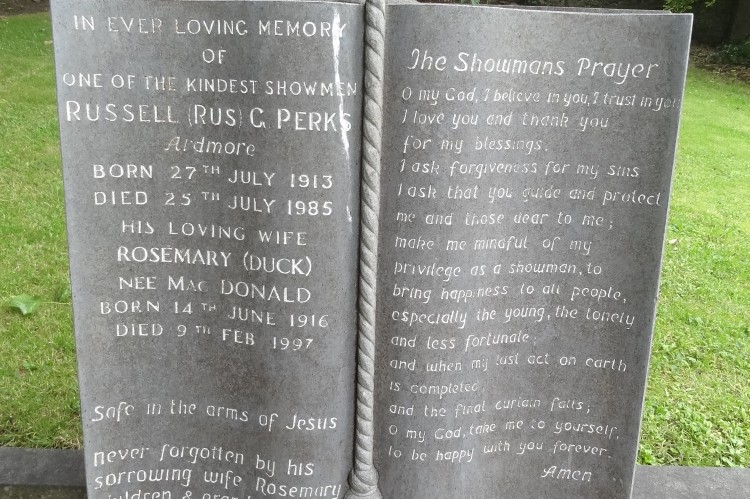 IN EVER LOVING MEMORY
OF
ONE OF THE KINDEST SHOWMEN
RUSSELL (RUS) G. PERKS
Ardmore
BORN 27TH JULY 1913
DIED 25TH JULY 1985
HIS LOVING WIFE
ROSEMARY (DUCK)
NEE MAC DONALD
BORN 14TH JUNE 1916
DIED 9TH FEB 1997
Safe in the arms of Jesus
never forgotten by his
sorrowing wife Rosemary
The Showmans Prayer
O my God, I believe in you, I trust in you
I love you and thank you
for my blessings.
I ask forgiveness for my sins
I ask that you guide and protect
me and those dear to me;
make me mindful of my
privilege as a showman, to
bring happiness to all people,
especially the young, the lonely
and less fortunate;
and when my last act on earth
is completed,
and the final curtain falls;
O my God, take me to yourself,
to be happy with you forever.
Amen